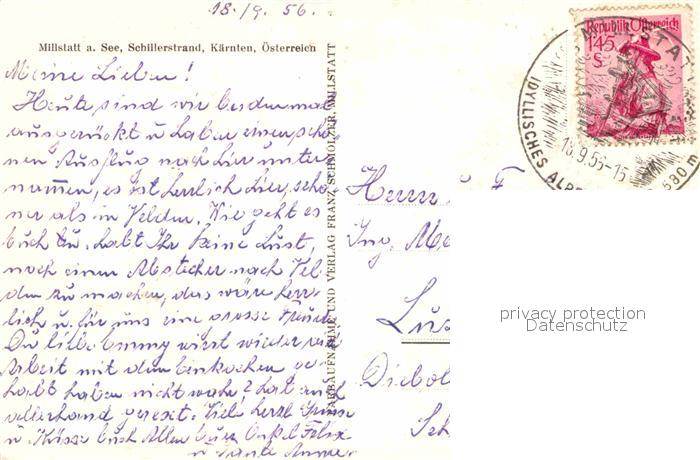 18./9. 56.
Millstatt a. See, Schillerstrand, Kärnten, Österreich
Meine Lieben!
Heute sind wir
ausgerückt u haben einen schö-
nen Ausflug nach hier unter-
nommen, es ist herrlich hier, schö-
ner als in Velden. Wie geht es
Euch u. habt Ihr keine Lust,
noch einen Abstecher nach Vel-
den zu machen, das wäre herr-
lich u. für uns eine grosse Freude
Du liebe Emmy wirst wieder viel
Arbeit mit dem Einkochen ge-
habt haben nicht wahr? hab auch
allerhand gereist. Viele herzl Grüsse
u. Küsse Euch Allen Euer Onkel Felix
u Tante Anna
FARBAUFNAHME UND VERLAG FRANZ SCHMÖLZER, MILLSTATT
Republik Österreich
1.45
S
MILLSTATT
IDYLLISCHES
18.9.56-15
580 m
Herrn
Ing.
privacy protection
Datenschutz